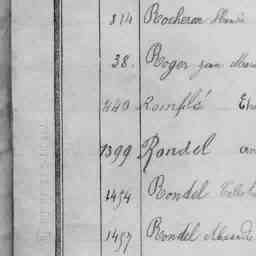 814 Rocheron
38. Roger Jean
440 Romfils
1399 Rondel
1454 Rondel
1457 Rondel Alexandre